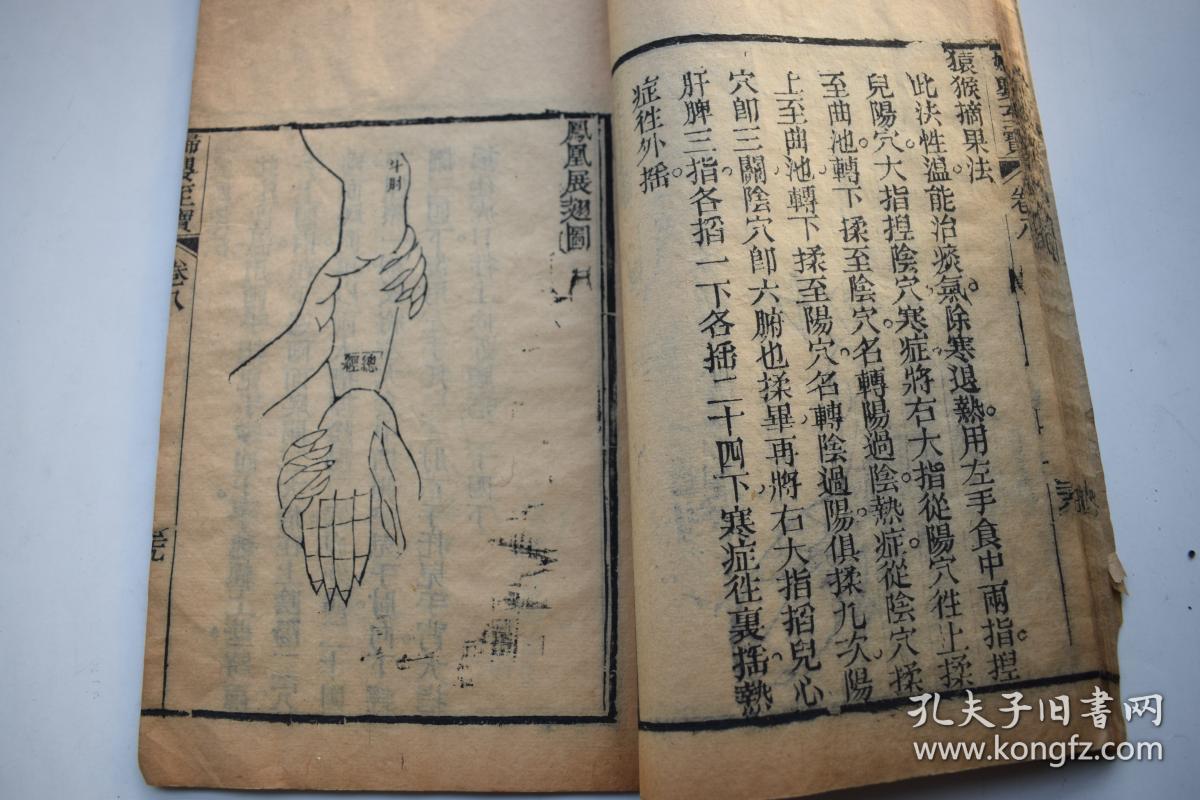 婦嬰至寶 卷八
猿猴摘果法
此法性溫能治痰氣除寒退熱。用左手食中兩指揑
兒陽穴大指揑陰穴寒症將右大指從陽穴徃上揉
至曲池轉下揉至陰穴名轉陽過陰熱症從陰穴揉
上至曲池轉下揉至陽穴名轉陰過陽俱揉九次陽
穴卽三關陰穴卽六腑也揉畢再將右大指掐兒心
肝脾三指各掐一下各揺二十四下寒症徃裏揺熱
症徃外揺
鳳凰展翅圖
斗肘
總經
婦嬰至寶 卷八
孔夫子旧书网
www.kongfz.com